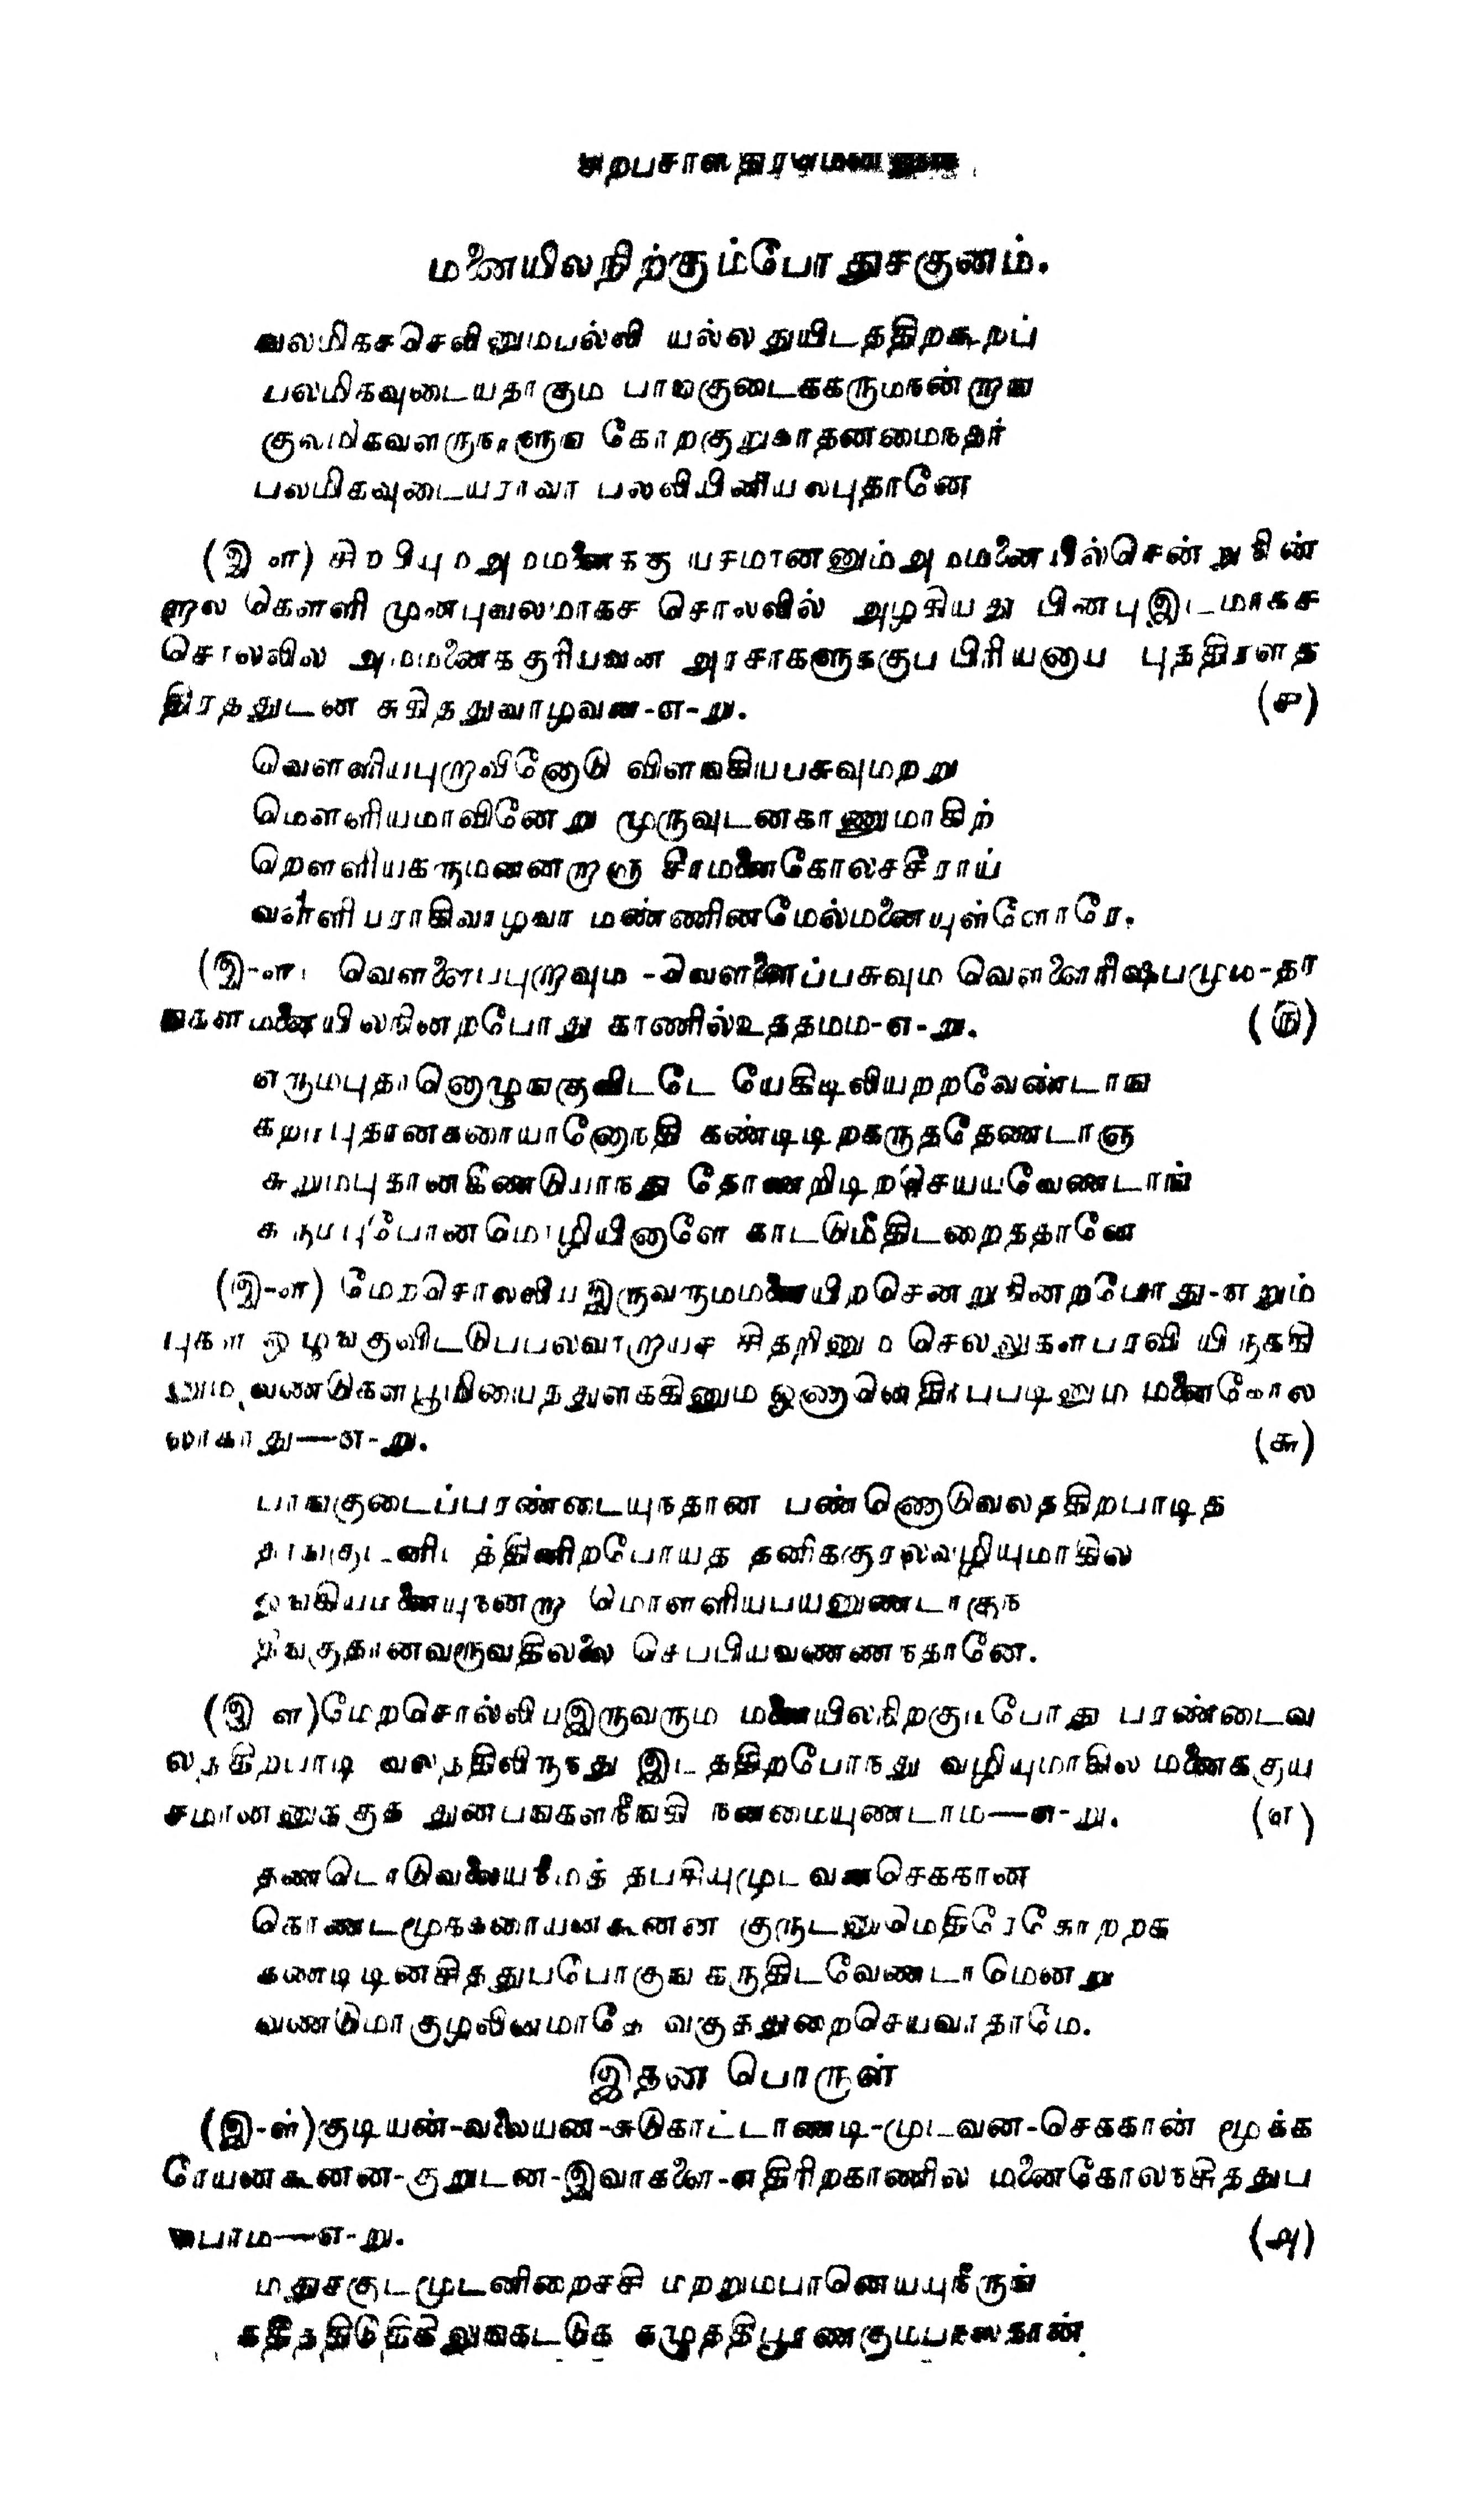 மனையிலநிற்கும்போதுசகுனம்.
வலமிகசசெலினுமபல்லி யல்லதுயிடததிறகூறப்
பலமிகவுடையதாகும பாஙகுடைககருமநன்றாங
குலமிகவளருநாளுங கோறகுறுகாதனமைநதர்
பலமிகவுடையராவா பலலியினியலபுதானே
(இ ள) சிறபியும அமமனைககு யசமானனும்அமமனையில்சென்றுநின்
றால கெளளி முனபுவலமாகச சொலலில் அழகியது பினபுஇடமாகச
சொலலில அமமனைககுரியவன அரசாகளுககுப பிரியனாய புததிரளத
திரததுடன சுகிததுவாழவன-எ-று. (ச)
வெளளியபுறாவினோடு விளஙகியபசுவுமறறு
மொளளியமாவினேறு முருவுடனகாணுமாகிற்
றெளளியகருமனனறாஞ சீரமனைகோலசசீராய்
வள்ளிபராகிவாழவா மண்ணினமேல்மனையுள்ளோரே.
(இ-ள) வெளளைபபுறாவும -வெளளைப்பசுவும வெளளைரிஷபமும-தா
ஙகளமனையிலநினறபோது காணில்உததமம-எ-று. (ரு)
எருமபுதானொழுஙகுவிடடே யேகிடிலியறறவேண்டாங
கறமபுதானகரையானோநதி கண்டிடிறகருததேணடாஞ
சுறுமபுகானகிணடுமாநது தோணறிடிறசெயயவேணடாங்
கருமபுபோனமொழியினாளே காடடுமீதிடறைநதானே
(இ-ள) மேறசொலலிய இருவருமமனையிறசெனறுநினறபோது-எறும்
புகள ஒழுஙகுவிடடுபபலவாறாயச சிதறினும செலலுகளபரவி யிருககி
னும வணடுகளபூமியைநதுளககினும ஓணானெதிரபபடினும மனைகோல
லாகாது—எ-று. (சு)
பாஙகுடைப்பரண்டையுநதான பண்ணொடுவலததிறபாடித
தாஙகுடனிடத்தினிறபோயத தனிககுரலவழியுமாகில
ஓஙகியமனையுநனறா மொளளியபயனுணடாகுந
தீஙகுதானவரூவதிலலை செபபியவணணநதானே.
(இ ள)மேறசொல்லிய இருவரும மனையிலநிறகுமபோது பரண்டைவ
லததிறபாடி வலததிலிருநது இடததிறபோநது வழியுமாகில மனைககுய
சமானனுககுத துனபஙகளநீஙகி நனமையுணடாம—எ-று. (எ)
தணடொடுவலையமேத் தபசியுமுடவனசெககான
கொணடமூககரையனகூனன குருடனுமெதிரேதோறறக
கணடிடினசிததுபபோகுங கருதிடவேணடாமெனறு
வணடுமாகுழலினமாதே வகுததுறைசெயவாதாமே.
இதன பொருள்
(இ-ள்)குடியன்-வலையன-சுடுகாட்டாணடி-முடவன-செககான் மூக்க
ரேயனகூனன-குறுடன-இவாகளை-எதிரிறகாணில மனைகோலசசிததுப
போம—எ-று. (அ)
மதுசகுடமுடனிறைசசி மறறுமபானெயயுநீருங்